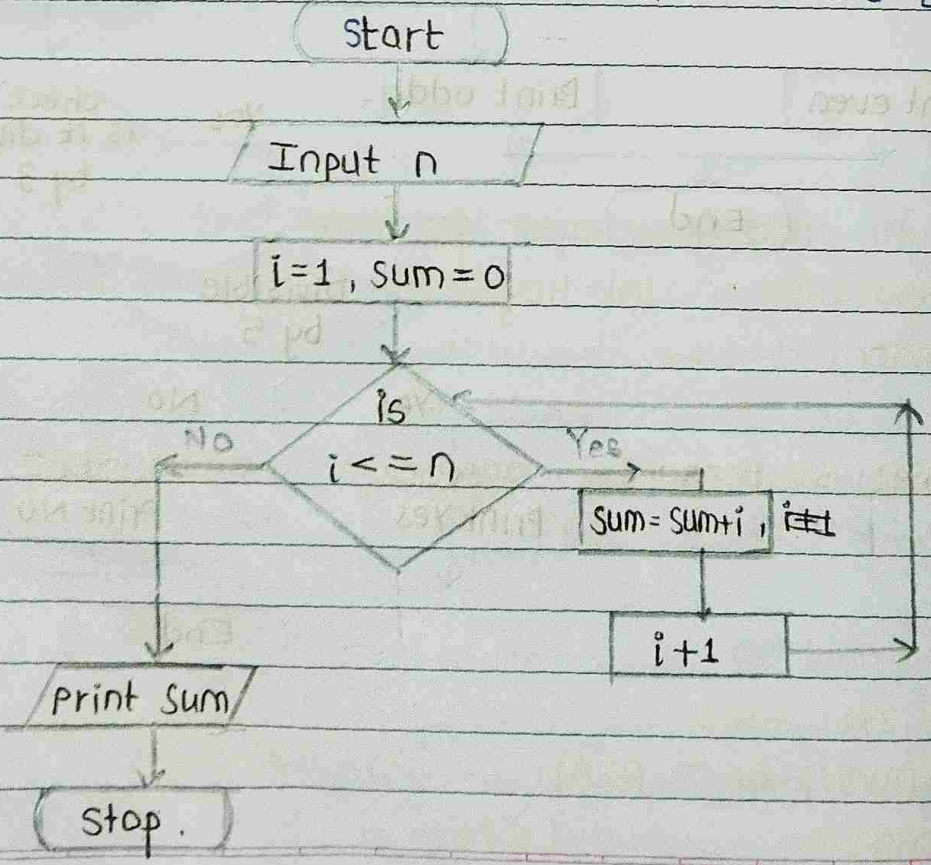 Start
Input n
i=1, sum=0
is
i<=n
No
Yes
sum=sum+i,
i+1
print sum
Stop.